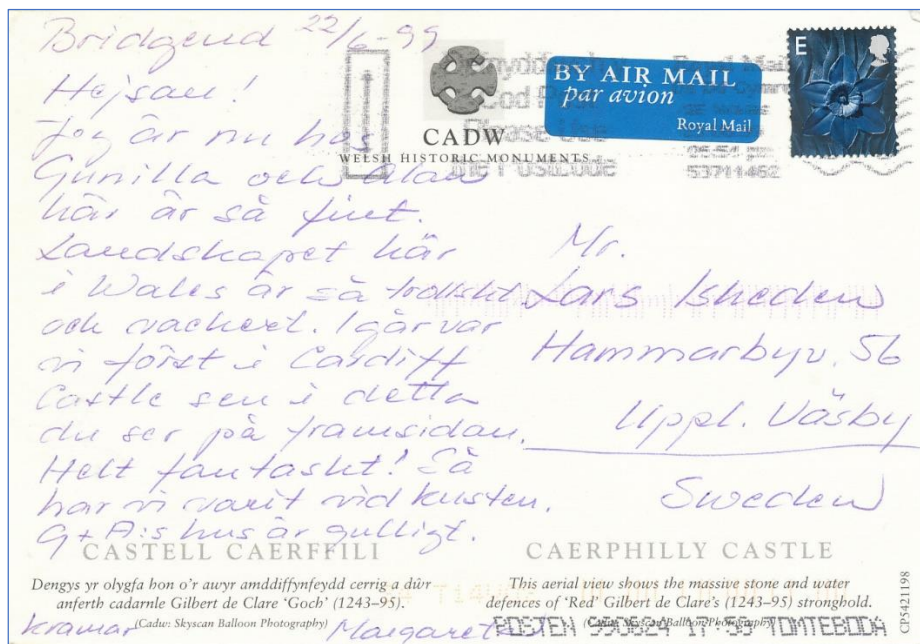 Bridgend 22/6-99
Hejsan!
Jag är nu hos
Gunilla och Alan
här är så fint.
Landskapet här
i Wales är så trolskt
och vackert. Igår var
vi först i Cardiff
Castle sen i detta
du ser på framsidan.
Helt fantastiskt! Så
har vi varit vid kusten.
G + A:s hus är gulligt.
Kramar Margareta
CADW
WELSH HISTORIC MONUMENTS
BY AIR MAIL
par avion
Royal Mail
E
Please Use
the Postcode
53711462
Mr.
Lars
Hammarbyv. 56
Uppl. Väsby
Sweden
CASTELL CAERFFILI
Dengys yr olygfa hon o'r awyr amddiffynfeydd cerrig a dŵr
anferth cadarnle Gilbert de Clare 'Goch' (1243–95).
(Cadw: Skyscan Balloon Photography)
CAERPHILLY CASTLE
This aerial view shows the massive stone and water
defences of 'Red' Gilbert de Clare's (1243–95) stronghold.
(Cadw: Skyscan Balloon Photography)
CP5421198
POSTEN 990624 TOMTEBODA